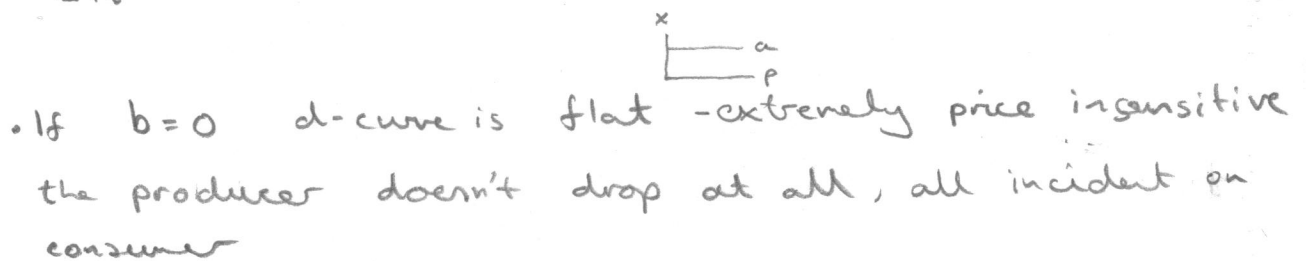 x
a
p
• If b=0 d-curve is flat - extremely price insensitive
the producer doesn't drop at all, all incident on
consumer